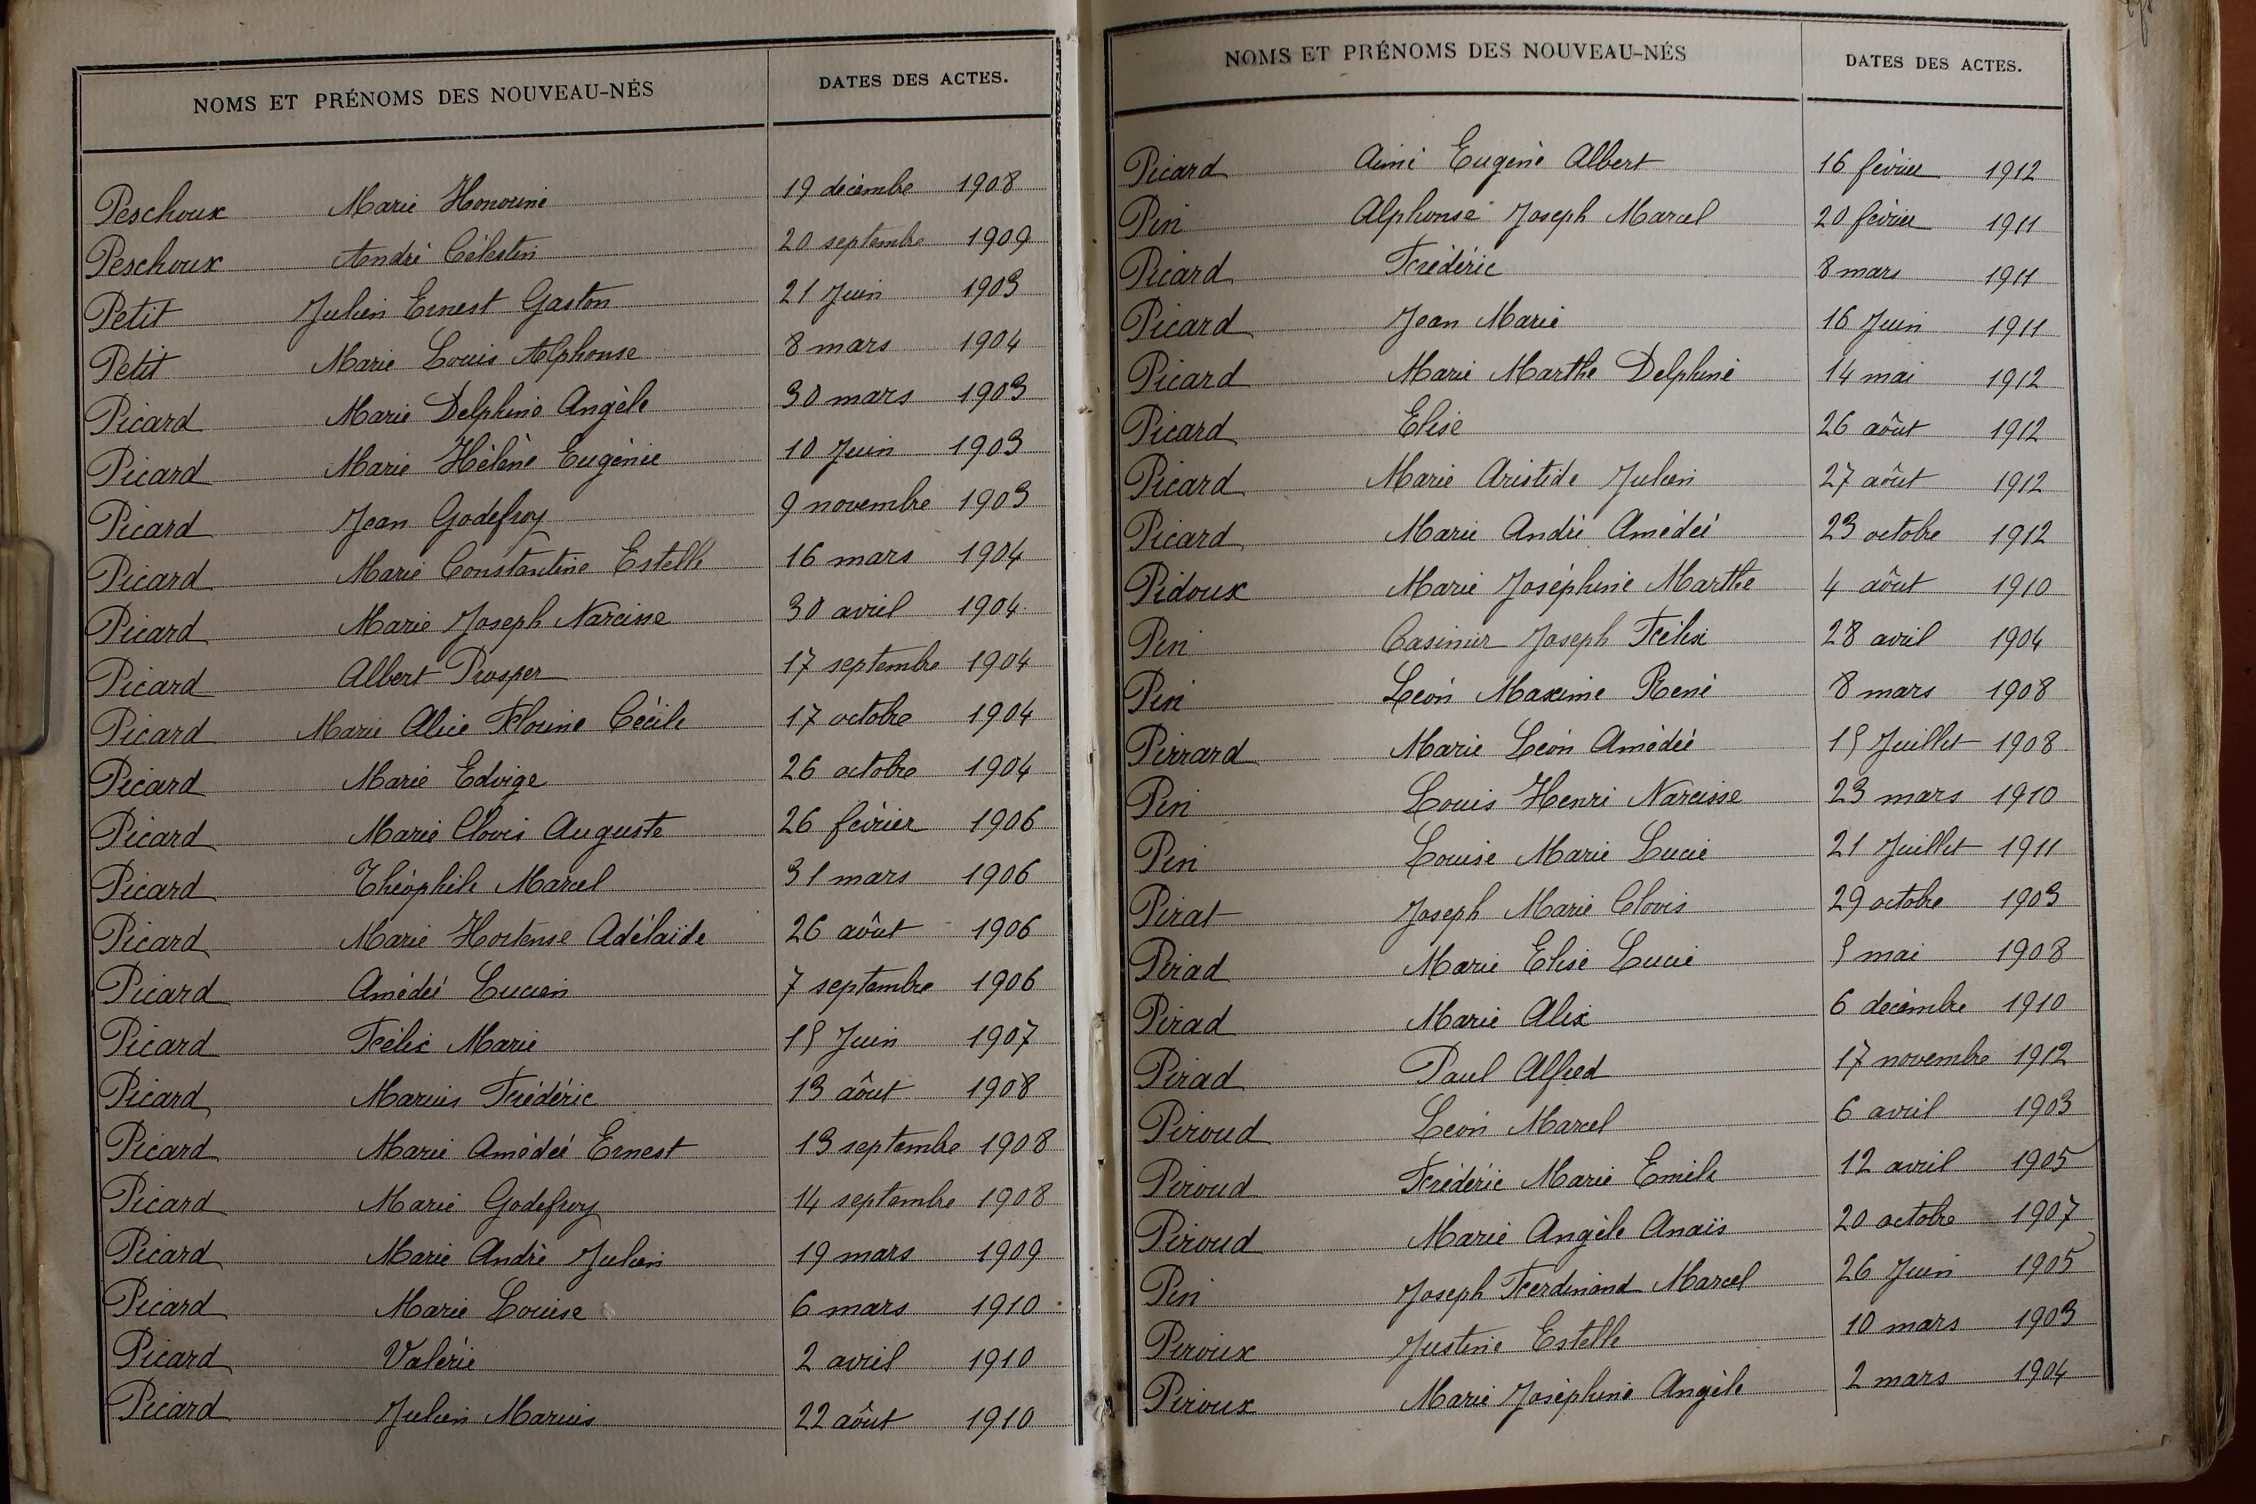 NOMS ET PRÉNOMS DES NOUVEAU-NÉS DATES DES ACTES.
Peschoux Marie Honorine 19 décembre 1908
Peschoux André Célestin 20 septembre 1909
Petit Julien Ernest Gaston 21 Juin 1903
Petit Marie Louis Alphonse 8 mars 1904
Picard Marie Delphine Angèle 30 mars 1903
Picard Marie Hélène Eugénie 10 Juin 1903
Picard Jean Godefroy 9 novembre 1903
Picard Marie Constantine Estelle 16 mars 1904
Picard Marie Joseph Narcisse 30 avril 1904
Picard Albert Prosper 17 septembre 1904
Picard Marie Alice Florine Cécile 17 octobre 1904
Picard Marie Edvige 26 octobre 1904
Picard Marie Clovis Auguste 26 février 1906
Picard Théophile Marcel 31 mars 1906
Picard Marie Hortense Adélaïde 26 aôut 1906
Picard Amédée Lucien 7 septembre 1906
Picard Félix Marie 15 Juin 1907
Picard Marius Frédéric 13 aôut 1908
Picard Marie Amédée Ernest 13 septembre 1908
Picard Marie Godefroy 14 septembre 1908
Picard Marie André Julien 19 mars 1909
Picard Marie Louise 6 mars 1910
Picard Valérie 2 avril 1910
Picard Julien Marius 22 aôut 1910
NOMS ET PRÉNOMS DES NOUVEAU-NÉS DATES DES ACTES.
Picard Aimé Eugène Albert 16 février 1912
Pin Alphonse Joseph Marcel 20 février 1911
Picard Frédéric 8 mars 1911
Picard Jean Marie 16 Juin 1911
Picard Marie Marthe Delphine 14 mai 1912
Picard Elise 26 aôut 1912
Picard Marie Aristide Julien 27 aôut 1912
Picard Marie André Amédée 23 octobre 1912
Pidoux Marie Joséphine Marthe 4 aôut 1910
Pin Casimir Joseph Félix 28 avril 1904
Pin Léon Maxime René 8 mars 1908
Pirrard Marie Léon Amédée 15 Juillet 1908
Pin Louis Henri Narcisse 23 mars 1910
Pin Louise Marie Lucie 21 Juillet 1911
Pirat Joseph Marie Clovis 29 octobre 1903
Pirad Marie Elise Lucie 5 mai 1908
Pirad Marie Alix 6 décembre 1910
Pirad Paul Alfred 17 novembre 1912
Piroud Léon Marcel 6 avril 1903
Piroud Frédéric Marie Emile 12 avril 1905
Piroud Marie Angèle Anaïs 20 octobre 1907
Pin Joseph Ferdinand Marcel 26 Juin 1905
Piroux Justine Estelle 10 mars 1903
Piroux Marie Joséphine Angèle 2 mars 1904